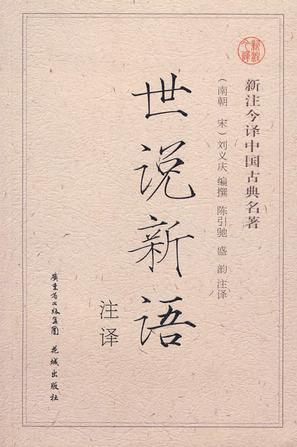 新注今译中国古典名著
（南朝 宋）刘义庆 编撰 陈引驰 盛韵 注译
世说新语
注译
广东省出版集团 花城出版社